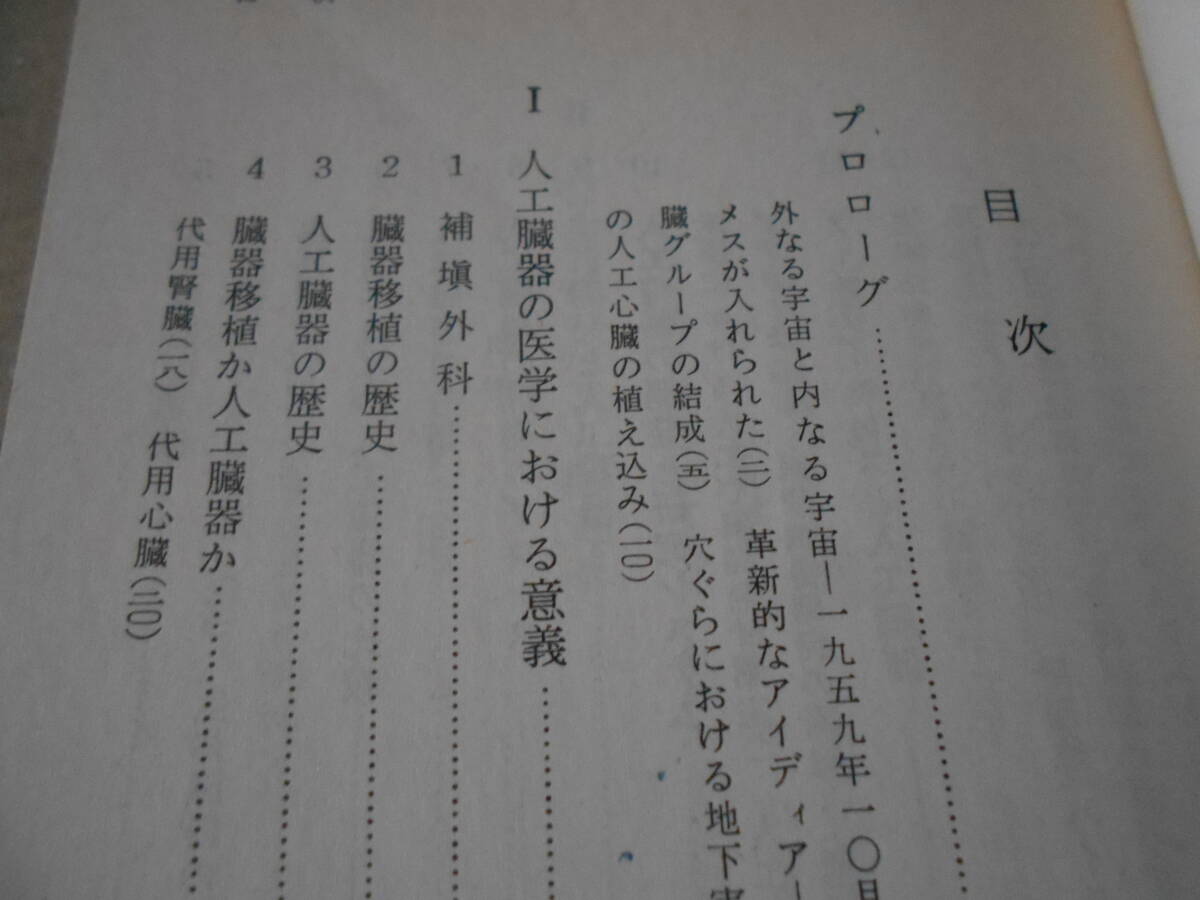 目次
プロローグ
外なる宇宙と内なる宇宙―一九五九年一〇月
メスが入れられた(二) 革新的なアイディアー
臓グループの結成(五) 穴ぐらにおける地下実
の人工心臓の植え込み(一〇)
I 人工臓器の医学における意義
1 補塡外科
2 臓器移植の歴史
3 人工臓器の歴史
4 臓器移植か人工臓器か
代用腎臓(一八) 代用心臓(二〇)